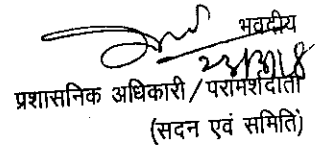 भवदीय
प्रशासनिक अधिकारी/परामर्शदाता
(सदन एवं समिति)